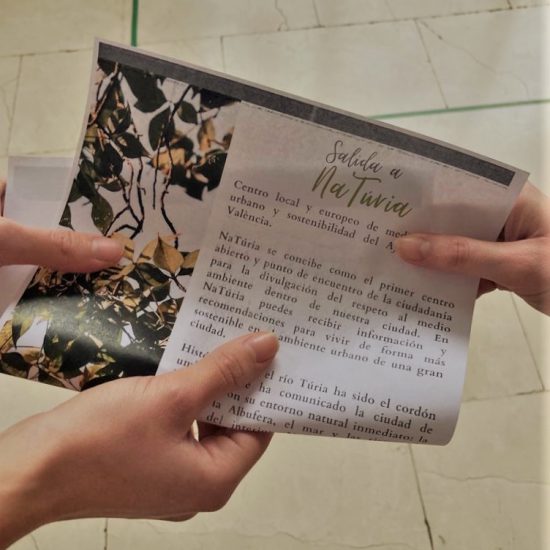 Salida a
NaTúria
Centro local y europeo de
urbano y sostenibilidad del
València.
NaTúria se concibe como el primer centro
abierto y punto de encuentro de la ciudadanía
para la divulgación del respeto al medio
ambiente dentro de nuestra ciudad. En
NaTúria puedes recibir información y
recomendaciones para vivir de forma más
sostenible en ambiente urbano de una gran
ciudad.
el río Túria ha sido el cordón
e ha comunicado la ciudad de
on su entorno natural inmediato: la
la Albufera, el mar y
del